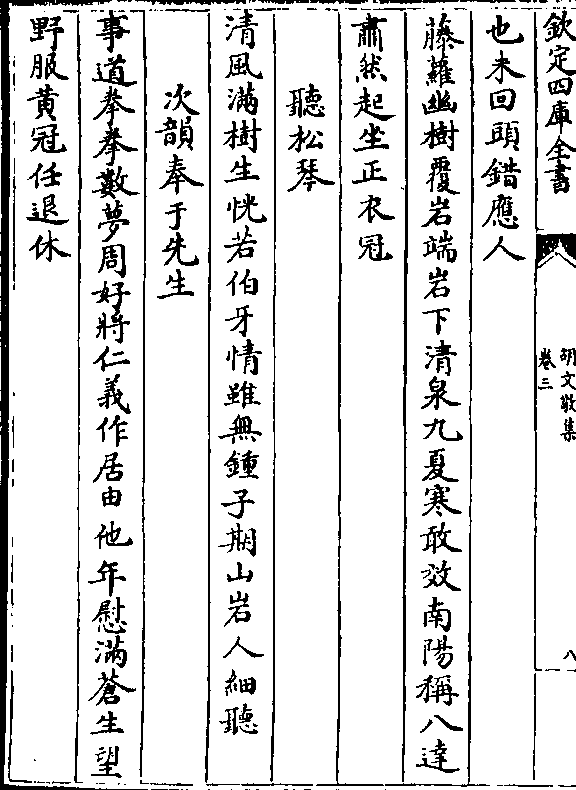 欽定四庫全書
胡文敬集
卷三
八
也未回頭錯應人
藤蘿幽樹覆岩端岩下清泉九夏寒敢效南陽稱八達
肅然起坐正衣冠
聽松琴
清風滿樹生恍若伯牙情雖無鍾子期山岩人細聽
次韻奉于先生
事道拳拳數夢周好將仁義作居由他年慰滿蒼生望
野服黃冠任退休